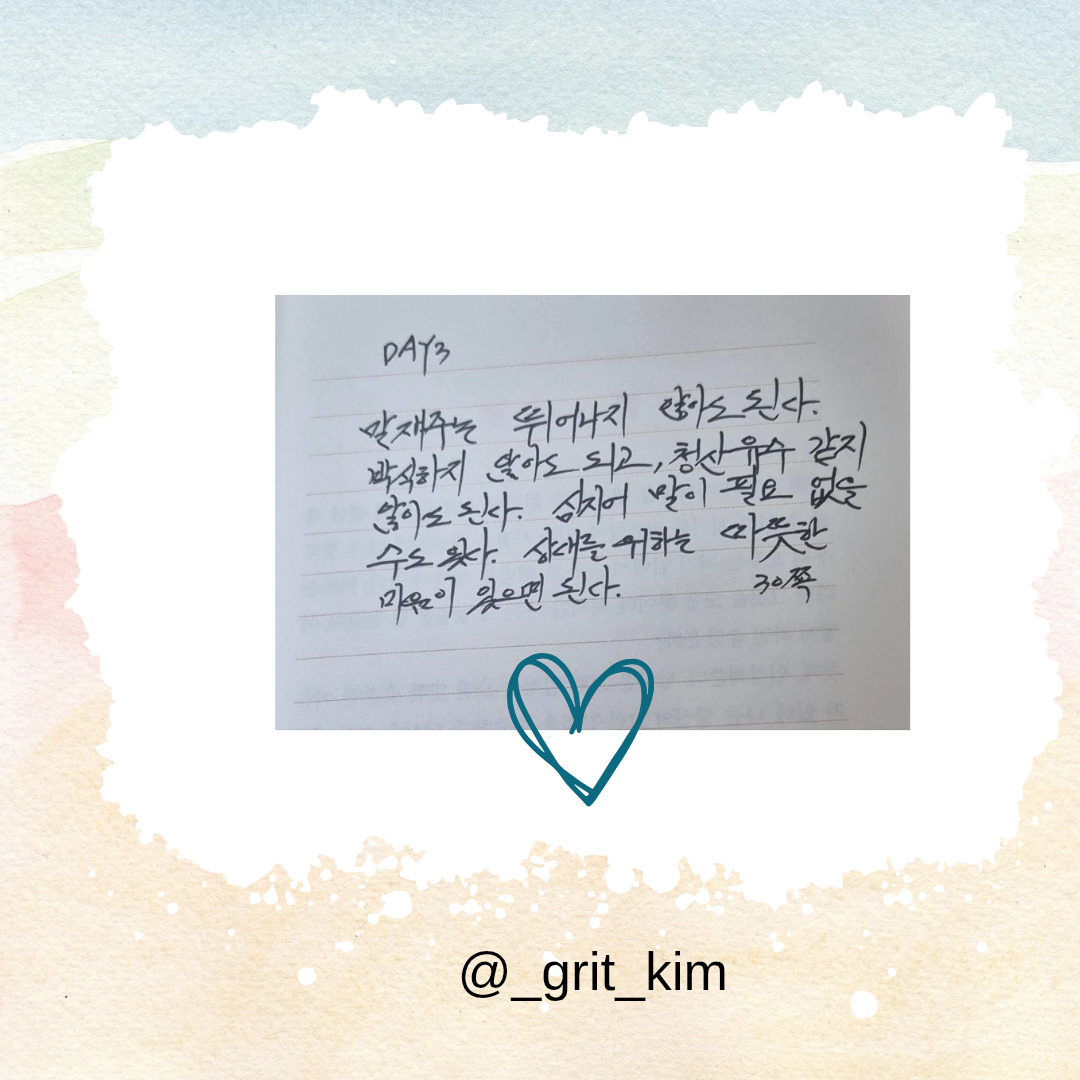 DAY3
말재주는 뛰어나지 않아도 된다.
박식하지 않아도 되고, 청산유수 같지
않아도 된다. 심지어 말이 필요 없을
수도 있다. 상대를 위하는 따뜻한
마음이 있으면 된다. 30쪽
@_grit_kim